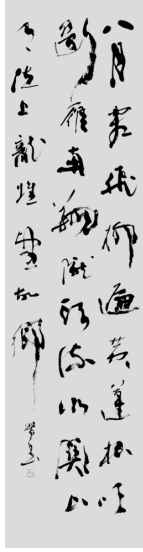 八月霜飛柳遍黃蓬根吹
斷雁南翔隴頭流水關山
月泣上龍堆望故鄉